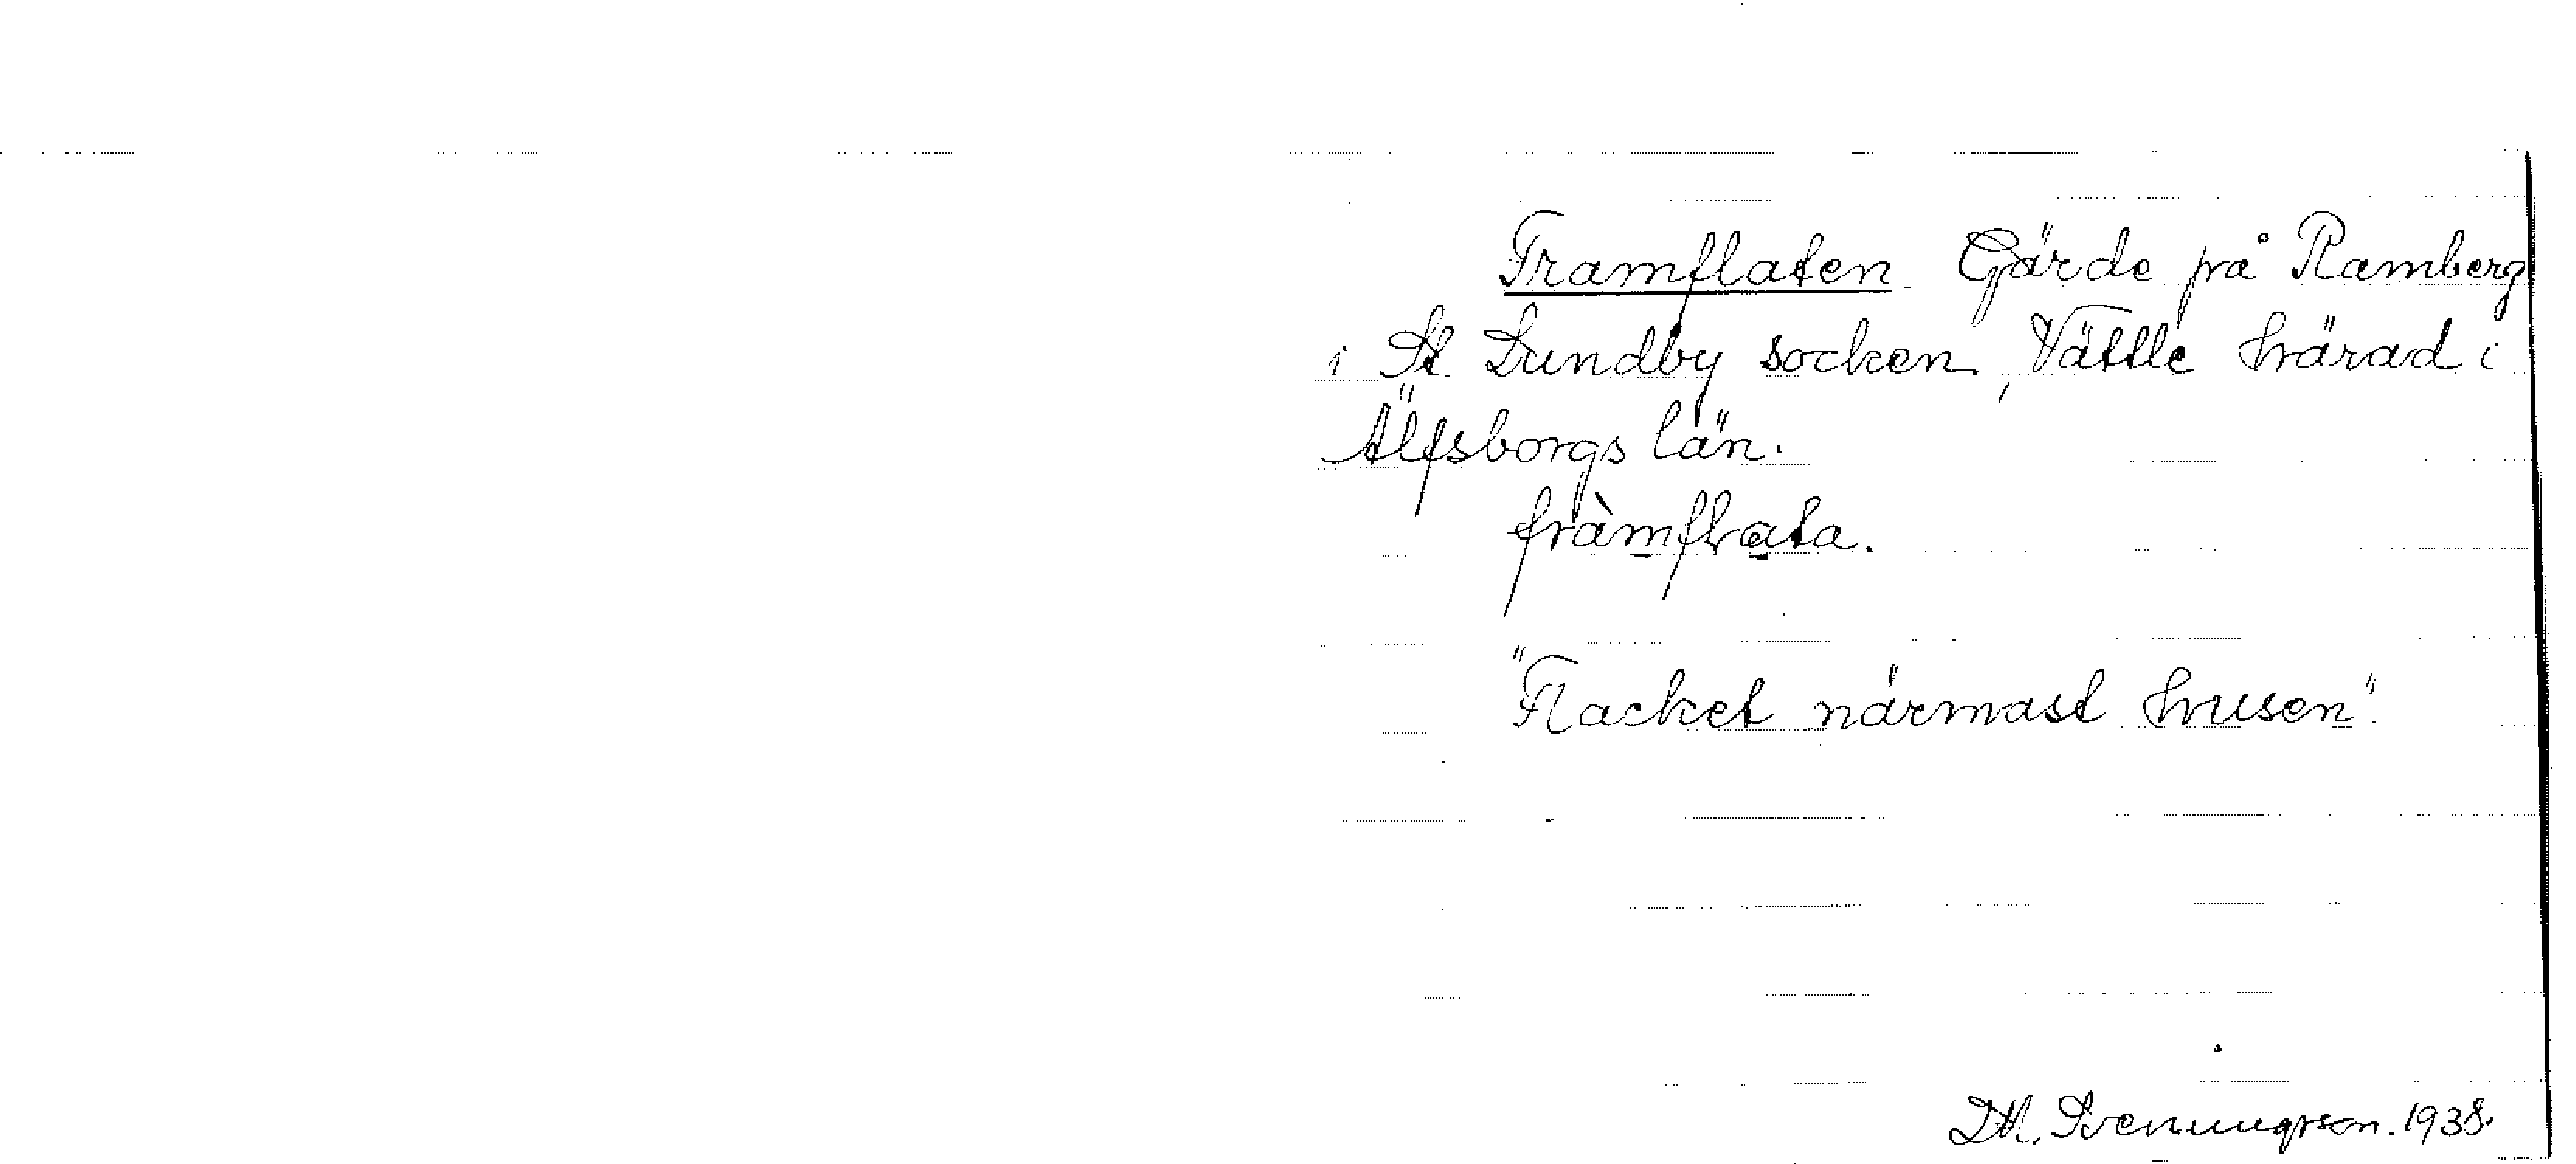 Framflaten Gärde på Ramberg
i St. Lundby socken, Vättle härad i
Älfsborgs län.
fràmflata.
"Flacket närmast husen".
D.H. Svenungsson. 1938.